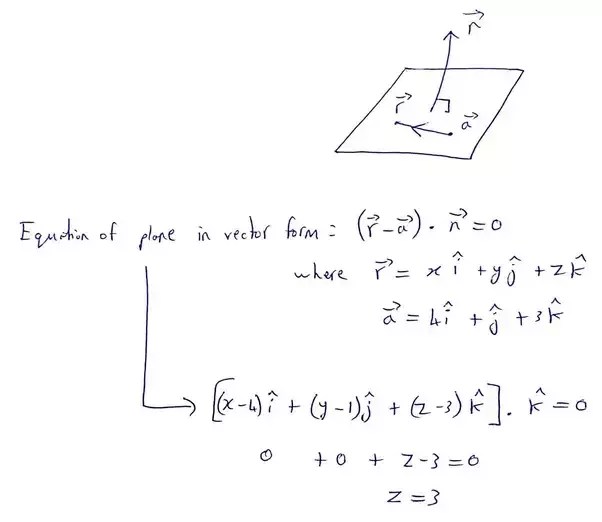 n⃗
r⃗
a⃗
Equation of plane in vector form: (r⃗ - a⃗) · n⃗ = 0
where r⃗ = x î + y ĵ + z k̂
a⃗ = 4 î + ĵ + 3 k̂
[(x-4) î + (y-1) ĵ + (z-3) k̂] · k̂ = 0
0 + 0 + z-3 = 0
z = 3